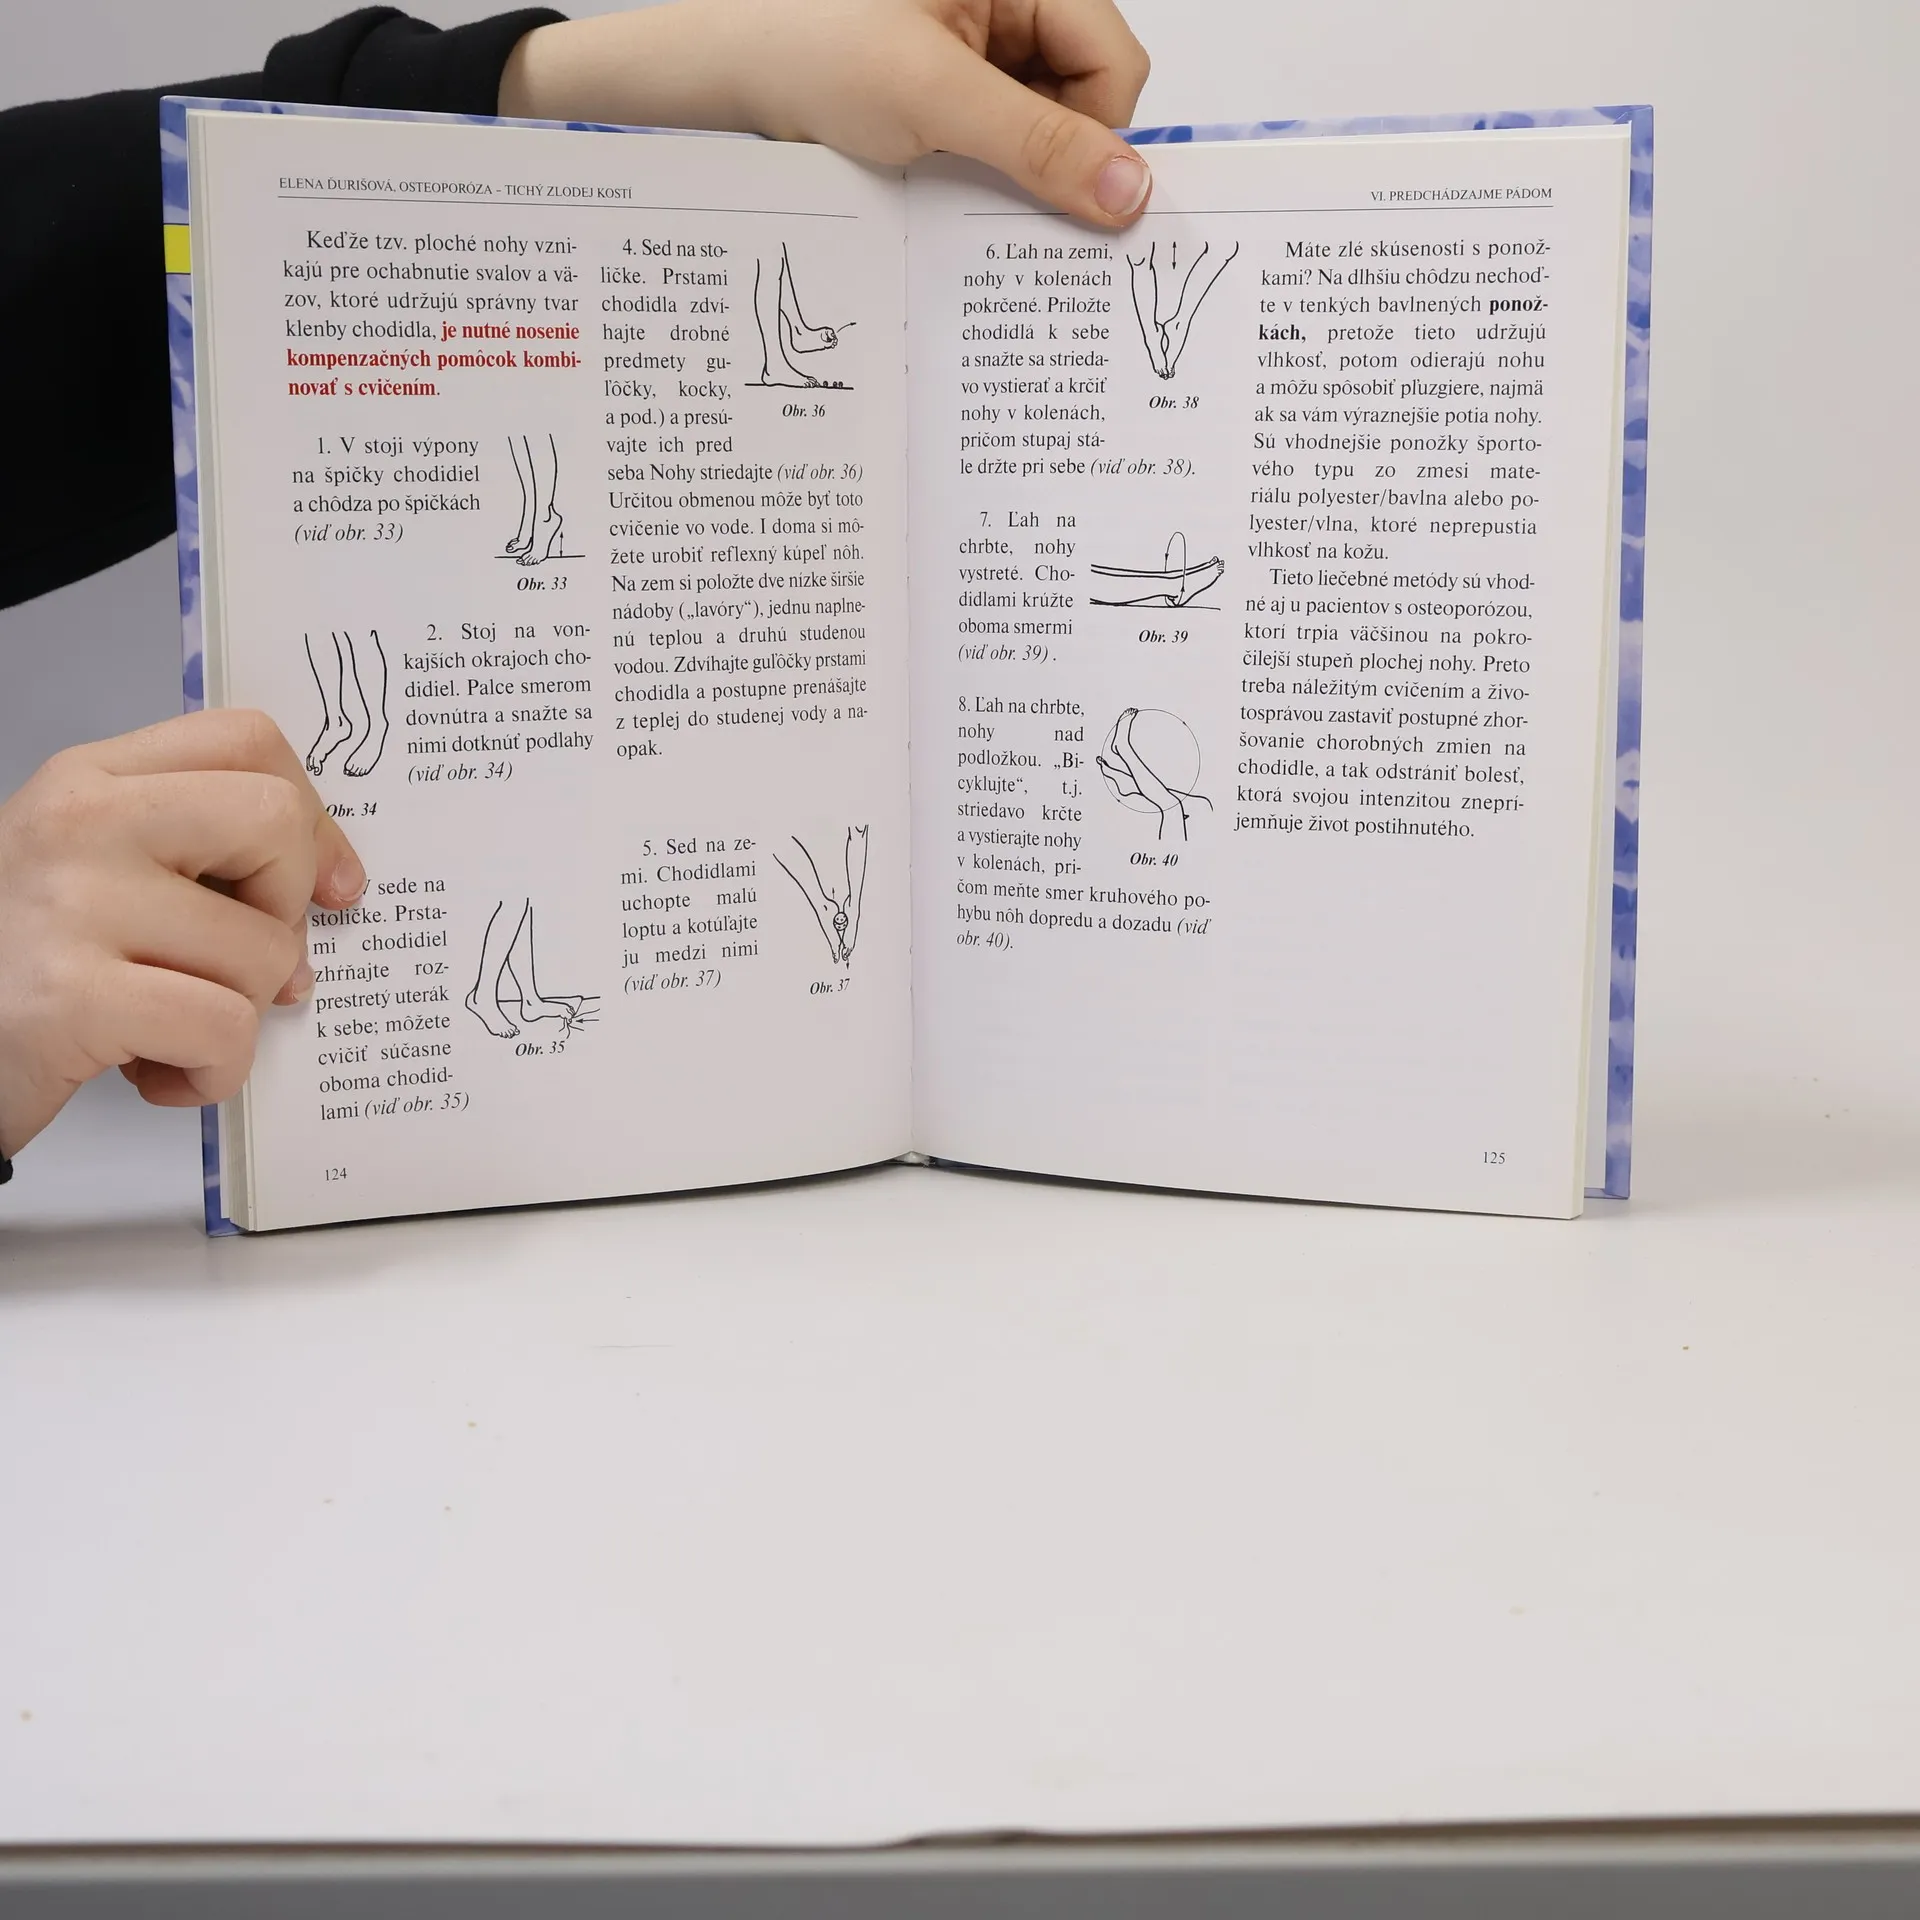 ELENA ĎURIŠOVÁ, OSTEOPORÓZA – TICHÝ ZLODEJ KOSTÍ
Keďže tzv. ploché nohy vzni-
kajú pre ochabnutie svalov a vä-
zov, ktoré udržujú správny tvar
klenby chodidla, je nutné nosenie
kompenzačných pomôcok kombi-
novať s cvičením.
1. V stoji výpony
na špičky chodidiel
a chôdza po špičkách
(viď obr. 33)
Obr. 33
2. Stoj na von-
kajších okrajoch cho-
didiel. Palce smerom
dovnútra a snažte sa
nimi dotknúť podlahy
(viď obr. 34)
Obr. 34
V sede na
stoličke. Prsta-
mi chodidiel
zhŕňajte roz-
prestretý uterák
k sebe; môžete
cvičiť súčasne
oboma chodid-
lami (viď obr. 35)
Obr. 35
4. Sed na sto-
ličke. Prstami
chodidla zdví-
hajte drobné
predmety gu-
ľôčky, kocky,
a pod.) a presú-
vajte ich pred
seba Nohy striedajte (viď obr. 36)
Obr. 36
Určitou obmenou môže byť toto
cvičenie vo vode. I doma si mô-
žete urobiť reflexný kúpeľ nôh.
Na zem si položte dve nízke širšie
nádoby („lavóry“), jednu naplne-
nú teplou a druhú studenou
vodou. Zdvíhajte guľôčky prstami
chodidla a postupne prenášajte
z teplej do studenej vody a na-
opak.
5. Sed na ze-
mi. Chodidlami
uchopte malú
loptu a kotúľajte
ju medzi nimi
(viď obr. 37)
Obr. 37
124
VI. PREDCHÁDZAJME PÁDOM
6. Ľah na zemi,
nohy v kolenách
pokrčené. Priložte
chodidlá k sebe
a snažte sa strieda-
vo vystierať a krčiť
nohy v kolenách,
pričom stupaj stá-
le držte pri sebe (viď obr. 38).
Obr. 38
7. Ľah na
chrbte, nohy
vystreté. Cho-
didlami krúžte
oboma smermi
(viď obr. 39) .
Obr. 39
8. Ľah na chrbte,
nohy nad
podložkou. „Bi-
cyklujte“, t.j.
striedavo krčte
a vystierajte nohy
v kolenách, pri-
čom meňte smer kruhového po-
hybu nôh dopredu a dozadu (viď
obr. 40).
Obr. 40
Máte zlé skúsenosti s ponož-
kami? Na dlhšiu chôdzu nechoď-
te v tenkých bavlnených ponož-
kách, pretože tieto udržujú
vlhkosť, potom odierajú nohu
a môžu spôsobiť pľuzgiere, najmä
ak sa vám výraznejšie potia nohy.
Sú vhodnejšie ponožky športo-
vého typu zo zmesi mate-
riálu polyester/bavlna alebo po-
lyester/vlna, ktoré neprepustia
vlhkosť na kožu.
Tieto liečebné metódy sú vhod-
né aj u pacientov s osteoporózou,
ktorí trpia väčšinou na pokro-
čilejší stupeň plochej nohy. Preto
treba náležitým cvičením a živo-
tosprávou zastaviť postupné zhor-
šovanie chorobných zmien na
chodidle, a tak odstrániť bolesť,
ktorá svojou intenzitou zneprí-
jemňuje život postihnutého.
125